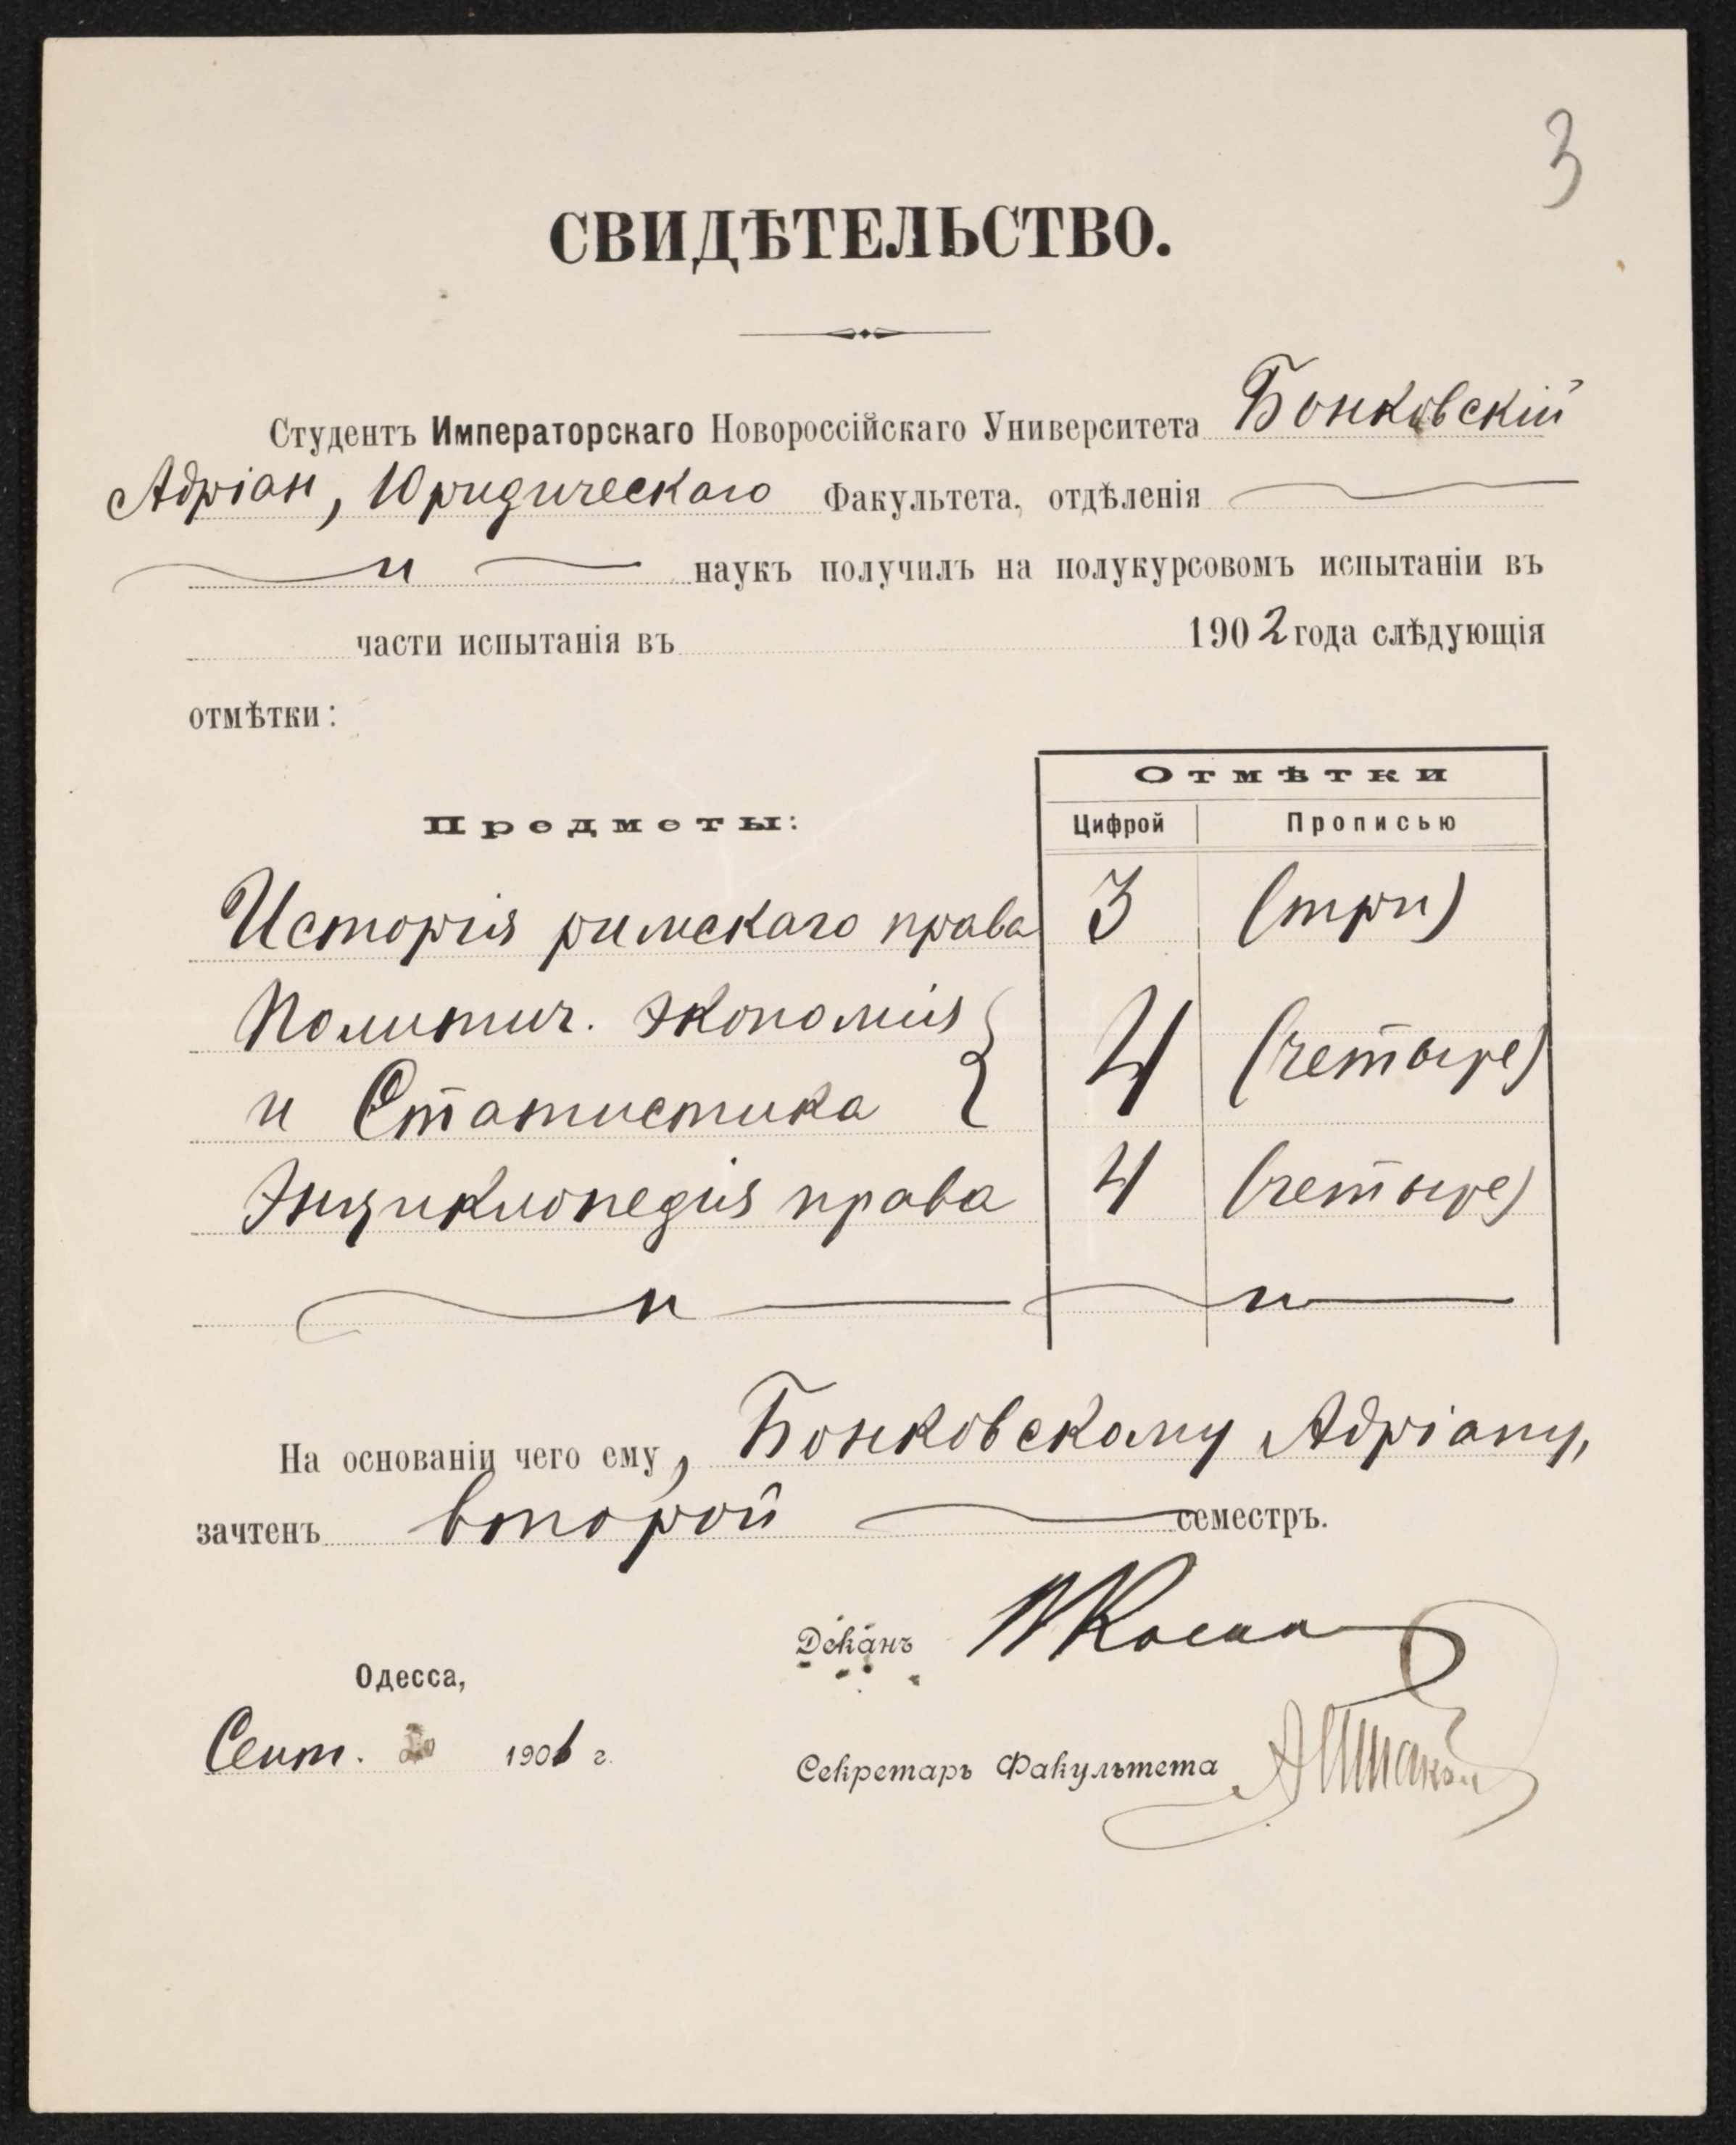 3
СВИДѢТЕЛЬСТВО.
Студентъ Императорскаго Новороссійскаго Университета Бонковскій
Адріан, Юридическаго Факультета, отдѣленія
" наукъ получилъ на полукурсовомъ испытаніи въ
части испытанія въ 1902 года слѣдующія
отмѣтки:
Отмѣтки
Предметы: Цифрой Прописью
Исторія римскаго права 3 (три)
Политич. экономія
и Статистика 4 (четыре)
Энциклопедія права 4 (четыре)
" "
На основаніи чего ему, Бонковскому Адріану,
зачтенъ второй семестръ.
Деканъ
Одесса,
Сент. 190 г.
Секретарь Факультета